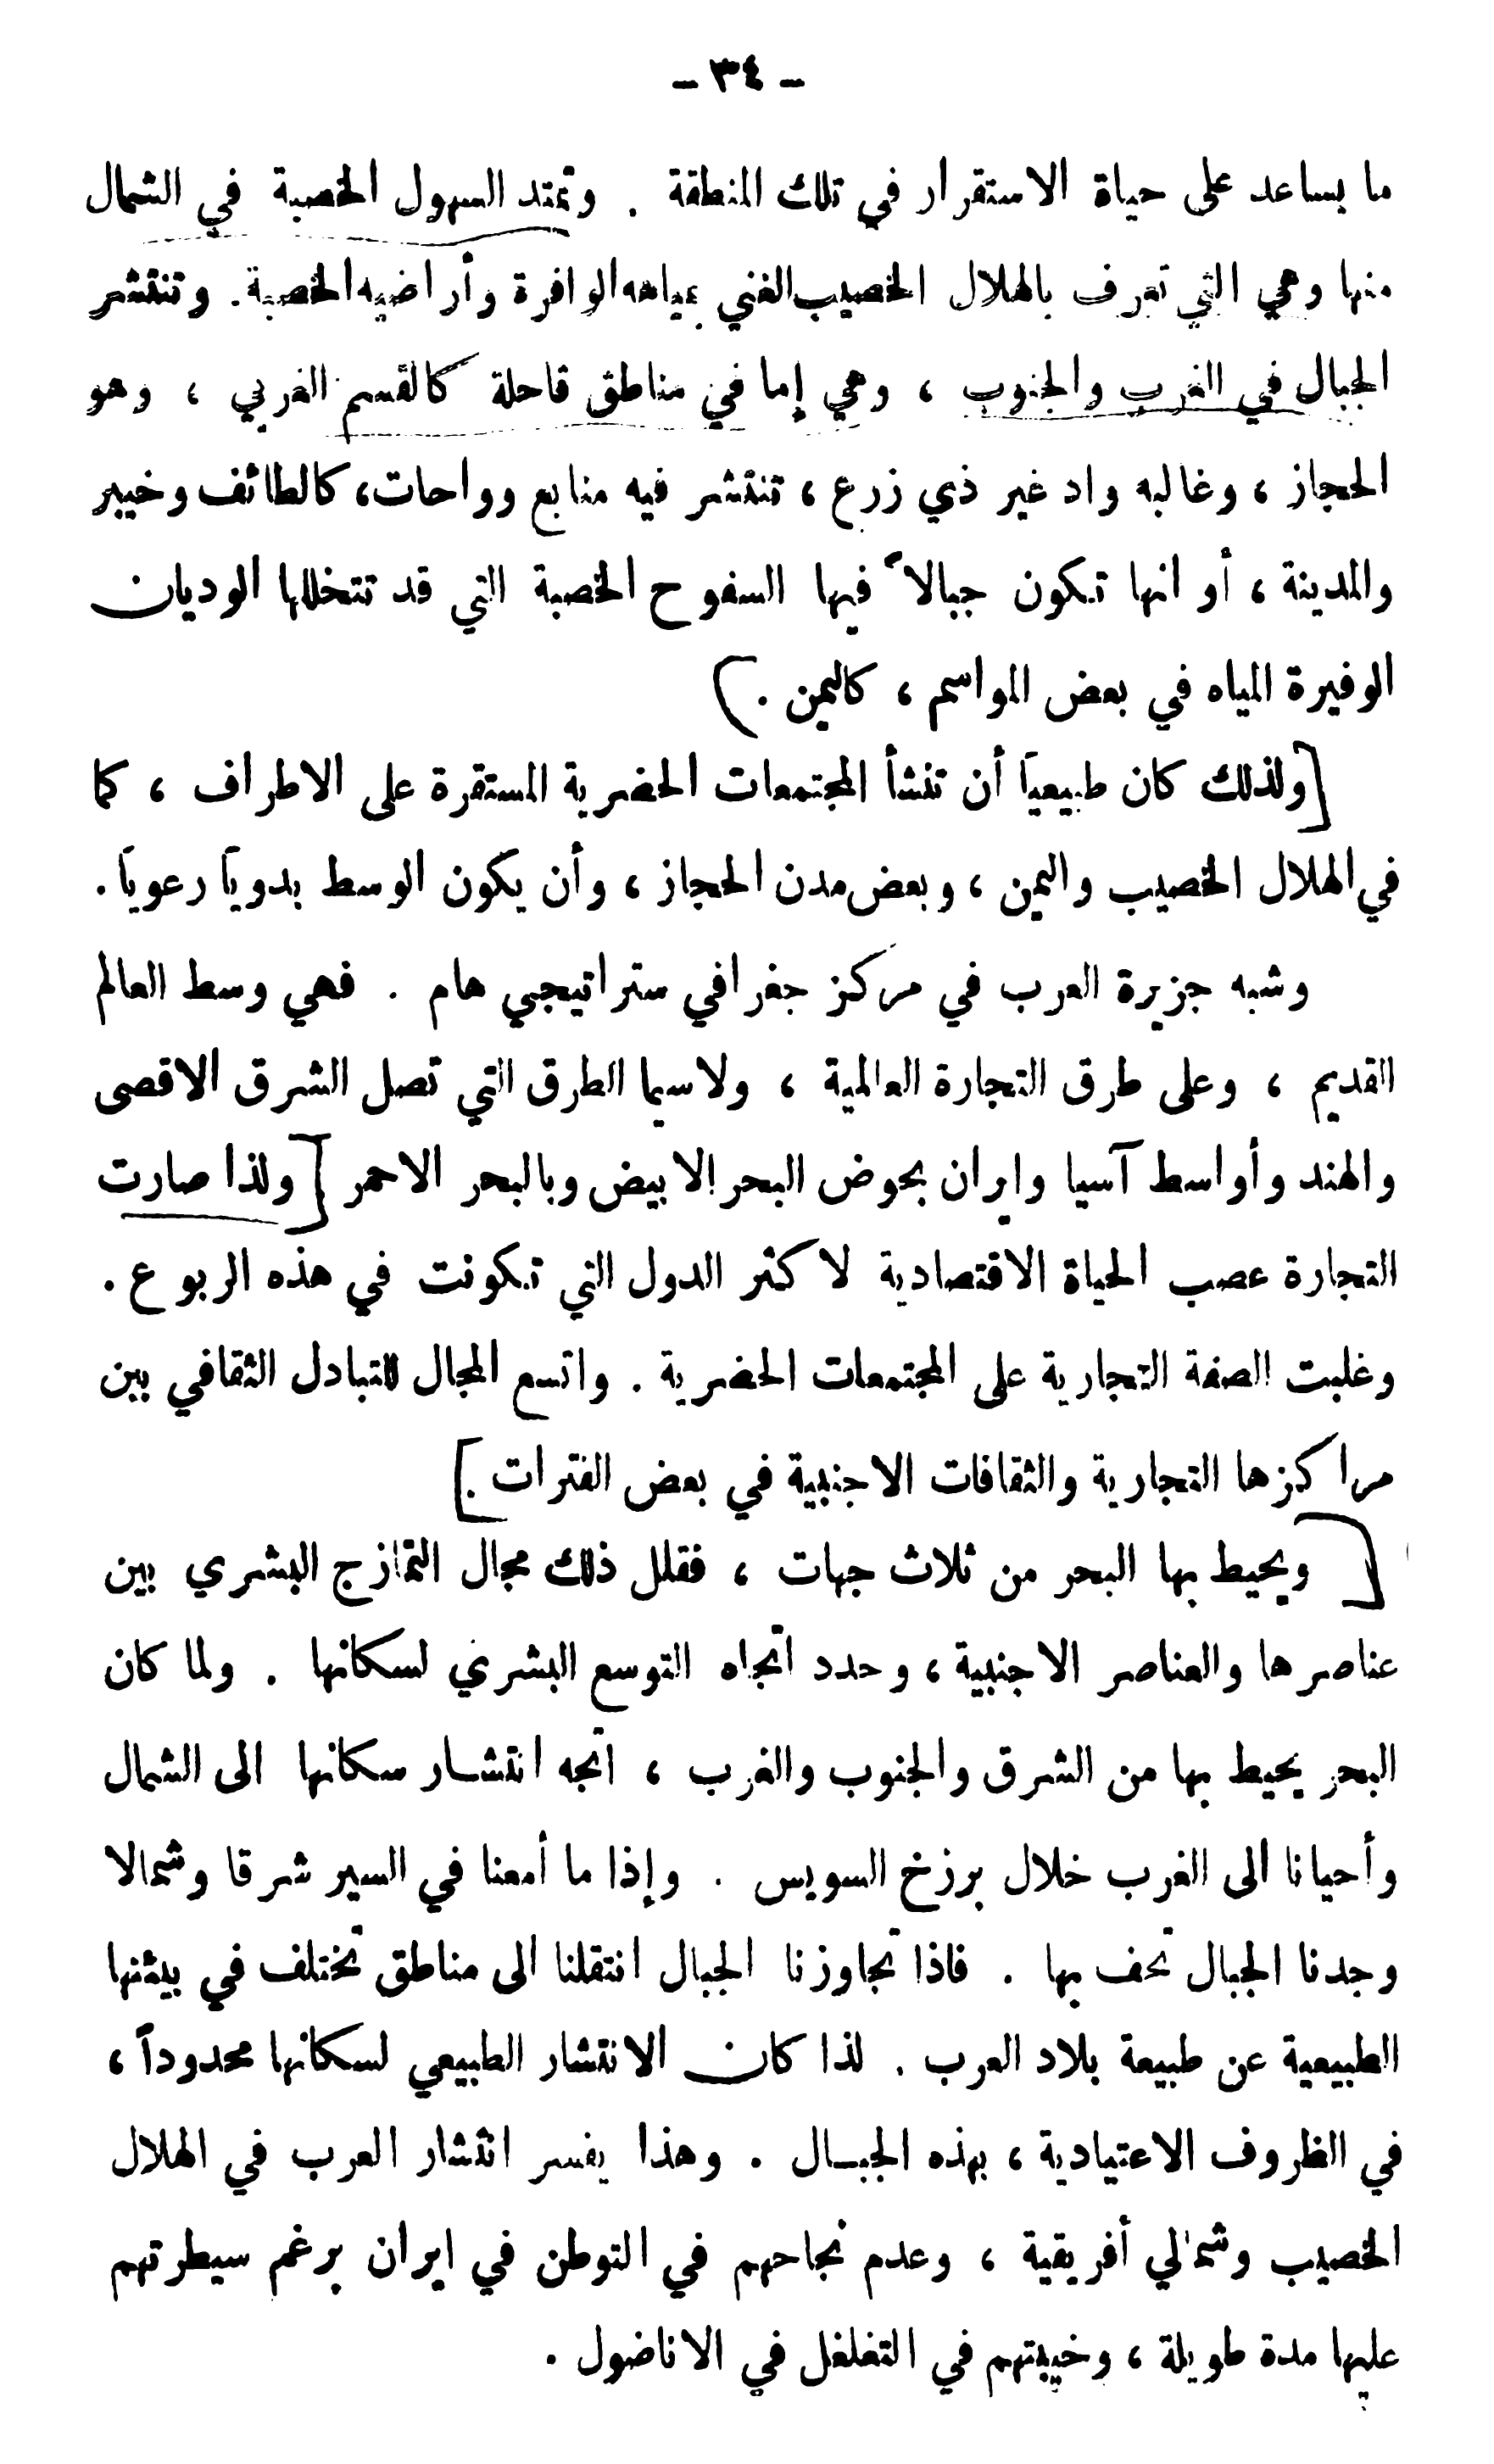 - ٣٤ -
ما يساعد على حياة الاستقرار في تلك المنطقة . وتمتد السهول الخصبة في الشمال
منها وهي التي تعرف بالهلال الخصيب الغني بمياهه الوافرة وأراضيه الخصبة. وتنتشر
الجبال في الغرب والجنوب ، وهي إما في مناطق قاحلة كالقسم الغربي ، وهو
الحجاز ، وغالبه واد غير ذي زرع ، تنتشر فيه منابع وواحات، كالطائف وخيبر
والمدينة ، أو انها تكون جبالاً فيها السفوح الخصبة التي قد تتخللها الوديان
الوفيرة المياه في بعض المواسم ، كاليمن . )
[ولذلك كان طبيعياً أن تنشأ المجتمعات الحضرية المستقرة على الاطراف ، كما
في الهلال الخصيب واليمن ، وبعض مدن الحجاز ، وأن يكون الوسط بدوياً رعوياً .
وشبه جزيرة العرب في مركز جغرافي ستراتيجي هام . فهي وسط العالم
القديم ، وعلى طرق التجارة العالمية ، ولاسيما الطرق التي تصل الشرق الاقصى
والهند وأواسط آسيا وايران بحوض البحر الابيض وبالبحر الاحمر [ولذا صارت
التجارة عصب الحياة الاقتصادية لاكثر الدول التي تكونت في هذه الربوع .
وغلبت الصفة التجارية على المجتمعات الحضرية . واتسع المجال للتبادل الثقافي بين
مراكزها التجارية والثقافات الاجنبية في بعض الفترات .]
[ ويحيط بها البحر من ثلاث جهات ، فقلل ذلك مجال التمازج البشري بين
عناصرها والعناصر الاجنبية ، وحدد اتجاه التوسع البشري لسكانها . ولما كان
البحر يحيط بها من الشرق والجنوب والغرب ، اتجه انتشار سكانها الى الشمال
وأحيانا الى الغرب خلال برزخ السويس . وإذا ما أمعنا في السير شرقا وشمالا
وجدنا الجبال تحف بها . فاذا تجاوزنا الجبال انتقلنا الى مناطق تختلف في بيئتها
الطبيعية عن طبيعة بلاد العرب . لذا كان الانتشار الطبيعي لسكانها محدوداً ،
في الظروف الاعتيادية ، بهذه الجبال . وهذا يفسر انتشار العرب في الهلال
الخصيب وشمالي أفريقية ، وعدم نجاحهم في التوطن في ايران برغم سيطرتهم
عليها مدة طويلة ، وخيبتهم في التغلغل في الاناضول .